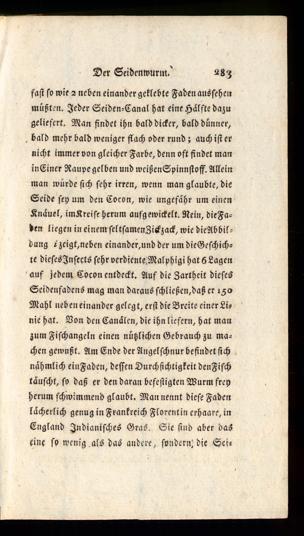 Der Seidenwurm. 283
fast so wie 2 neben einander geklebte Faden aussehen
müßten. Jeder Seiden-Canal hat eine Hälfte dazu
geliefert. Man findet ihn bald dicker, bald dünner,
bald mehr bald weniger flach oder rund; auch ist er
nicht immer von gleicher Farbe, denn oft findet man
in Einer Raupe gelben und weißen Spinnstoff. Allein
man würde sich sehr irren, wenn man glaubte, die
Seide sey um den Cocon, wie ungefähr um einen
Knäuel, im Kreise herum aufgewickelt. Nein, die Fa-
den liegen in einem seltsamen Zickzack, wie die Abbil-
dung i zeigt, neben einander, und der um die Geschich-
te dieses Insects sehr verdiente Malphigi hat 6 Lagen
auf jedem Cocon entdeckt. Auf die Zartheit dieses
Seidenfadens mag man daraus schließen, daß er 150
Mahl neben einander gelegt, erst die Breite einer Li-
nie hat. Von den Canälen, die ihn liefern, hat man
zum Fischangeln einen nützlichen Gebrauch zu ma-
chen gewußt. Am Ende der Angelschnur befindet sich
nähmlich ein Faden, dessen Durchsichtigkeit den Fisch
täuscht, so daß er den daran befestigten Wurm frey
herum schwimmend glaubt. Man nennt diese Faden
lächerlich genug in Frankreich Florentin erhaare, in
England Indianisches Gras. Sie sind aber das
eine so wenig als das andere, sondern die Sei-